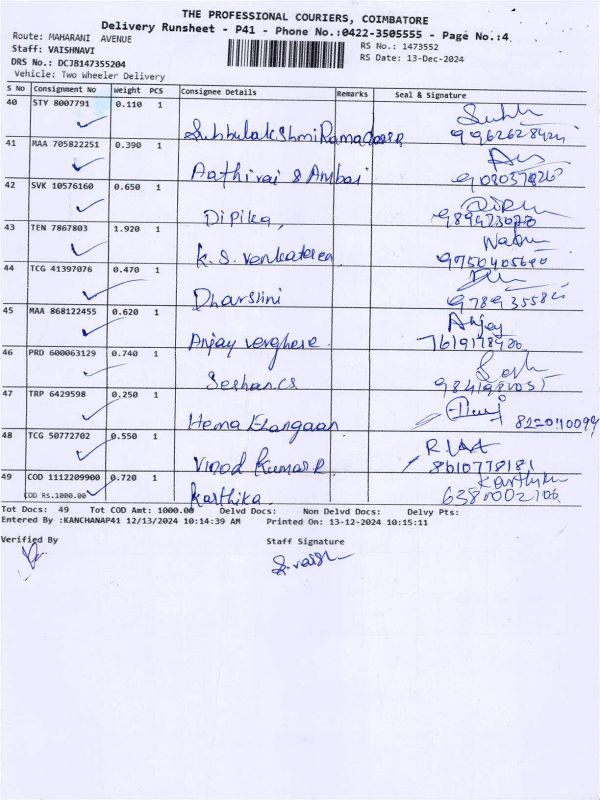 THE PROFESSIONAL COURIERS, COIMBATORE
Delivery Runsheet - P41 - Phone No.:0422-3505555 - Page No.:4
Route: MAHARANI AVENUE
RS No.: 1473552
Staff: VAISHNAVI
RS Date: 13-Dec-2024
DRS No.: DCJB147355204
Vehicle: Two Wheeler Delivery
S No Consignment No Weight PCS Consignee Details Remarks Seal & Signature
40 STY 8007791 0.110 1
Subbulakshmi Ramadoss
41 MAA 705822251 0.390 1
Aathirai & Anbai
42 SVK 10576160 0.650 1
Dipika,
43 TEN 7867803 1.920 1
K.S. Venkatesa
44 TCG 41397076 0.470 1
Dharshni
45 MAA 868122455 0.620 1
Anjay
Anjay verghese
46 PRD 600063129 0.740 1
Seshan.cs
47 TRP 6429598 0.250 1
Hema Elangaan
48 TCG 50772702 0.550 1
Vinod Kumar R
8610778181
49 COD 1112209900 0.720 1
Karthika
COD RS.1000.00
Karthika
Tot Docs: 49 Tot COD Amt: 1000.00 Delvd Docs: Non Delvd Docs: Delvy Pts:
Entered By :KANCHANAP41 12/13/2024 10:14:39 AM Printed On: 13-12-2024 10:15:11
Verified By
Staff Signature
S.vaish